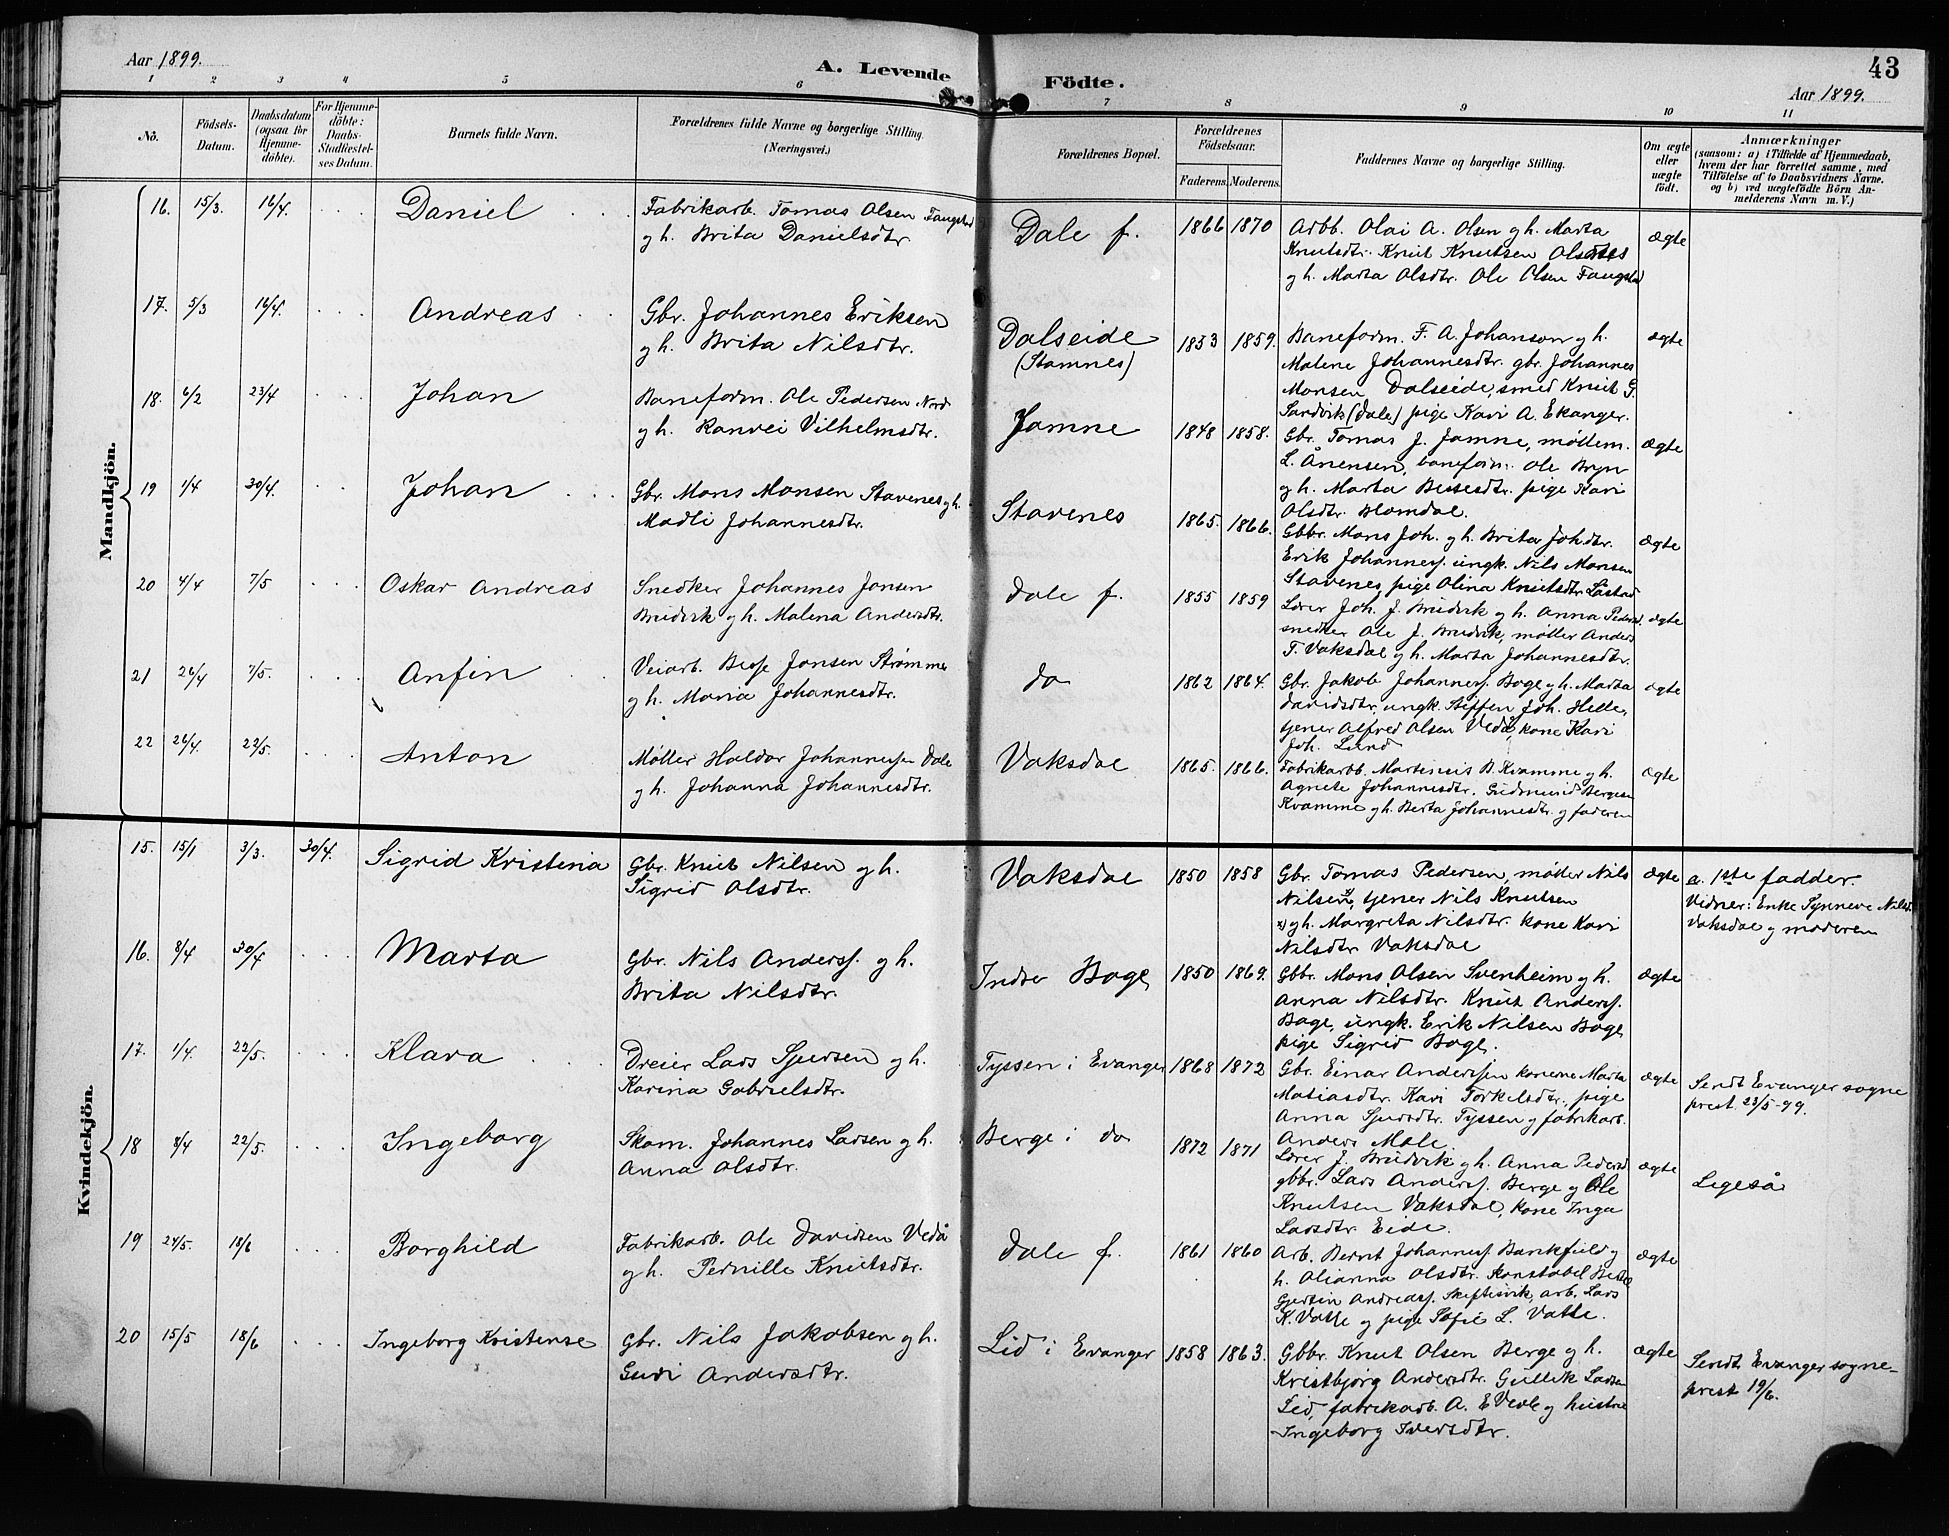 Aar 1899.
A. Levende Födte.
43
Aar 1899.
1 2 3 4 5 6 7 8 9 10 11
No.
Födsels-Datum.
Daabsdatum (ogsaa for Hjemmedöbte).
For Hjemmedöbte: Daabs-Stadfæstelses Datum.
Barnets fulde Navn.
Forældrenes fulde Navne og borgerlige Stilling.
(Næringsvei.)
Forældrenes Bopæl.
Forældrenes Födselsaar.
Faderens. Moderens.
Faddernes Navne og borgerlige Stilling.
Om ægte eller uægte født.
Anmærkninger
(saasom: a) i Tilfælde af Hjemmedaab,
hvem der har forrettet samme, med
Tilföielse af to Daabsvidners Navne.
og b) ved uægtefödte Börn An-
melderens Navn m. V.)
Mandkjön.
16. 15/3. 16/4. Daniel
Fabrikarb. Tomas Olsen Fangstad
g h. Brita Danielsdtr.
Dale f. 1866 1870
Arbb. Olai A. Olsen g h. Marta
Knutsdtr. Knut Knutsen
g h. Marta Olsdtr. Ole Olsen Fangstad
ægte
17. 5/3 16/4. Andreas
Gbr. Johannes Eriksen
g h. Brita Nilsdtr.
Dalseide
(Stamnes)
1853 1859.
Baneform. F. A. Johanson g h.
Malene Johannesdtr. gbr. Johannes
Monsen Dalseide, smed Knut G.
Sandvik (Dale) pige Kari A. Ekanger.
ægte
18. 6/2 23/4 Johan
Baneform. Ole Pedersen Nord
g h. Ranvei Vilhelmsdtr.
Jamne 1848 1858.
Gbr. Tomas J. Jamne, møllem.
L. Ånensen, baneform. Ole Bryn
g h. Marta Bessesdtr. pige Kari
Olsdtr. Blomdal.
ægte
19 1/4 30/4. Johan
Gbr. Mons Monsen Stavenes g h.
Madli Johannesdtr.
Stavenes 1865. 1866.
Gbbr. Mons Joh. g h. Brita Joh.dtr.
Erik Johanness. ungk. Nils Monsen
Stavenes, pige Olina Knutsdtr. Låstad
ægte
20 4/4 7/5 Oskar Andreas
Snedker Johannes Jonsen
Brudvik g h. Malena Andersdtr.
Dale f. 1855 1859
Lærer Joh. J. Brudvik g h. Anna Pedersd.
snedker Ole J. Brudvik, møller Anders
T. Vaksdal g h. Marta Johannesdtr.
ægte
21 26/4 7/5. Anfin
Veiarb. Besse Jonsen Strømme
g h. Maria Johannesdtr.
do 1862 1864.
Gbr. Jakob Johanness. Boge g h. Marta
Davidsdtr. ungk. Steffen Joh. Helle,
tjener Alfred Olsen Vedå, kone Kari
Joh. Lund
ægte
22 26/4. 22/5. Anton
Møller Haldor Johannessen Dale
g h. Johanna Johannesdtr.
Vaksdal 1865. 1866.
Fabrikarbb. Martinus B. Kvamme g h.
Agnete Johannesdtr. Gudmund Bergesen
Kvamme g h. Berta Johannesdtr. og faderen
ægte
Kvindekjön.
15. 15/1 3/3. 30/4. Sigrid Kristina
Gbr. Knut Nilsen g h.
Sigrid Olsdtr.
Vaksdal 1850 1858
Gbr. Tomas Pedersen, møller Nils
Nilsen x), tjener Nils Knutsen
x) g h. Margreta Nilsdtr. kone Kari
Nilsdtr. Vaksdal
ægte
a. 1ste fadder.
Vidner: Enke Synneve Nilsd.
Vaksdal og moderen
16. 8/4 30/4 Marta
Gbr. Nils Anderss. g h.
Brita Nilsdtr.
Indre Boge 1850 1869.
Gbbr. Mons Olsen Svenheim g h.
Anna Nilsdtr. Knut Anderss.
Boge, ungk. Erik Nilsen Boge,
pige Sigrid Boge.
ægte
17. 1/4. 22/5. Klara
Dreier Lars Sjursen g h.
Karina Gabrielsdtr.
Tyssen i Evanger 1868 1872
Gbr. Einar Anderssen konerne Marta
Matiasdtr. Kari Torkelsdtr., pige
Anna Sjursdtr. Tyssen og fabrikarb.
Anders Mole.
ægte
Sendt Evanger sogne
prest 23/5-99.
18 8/4 22/5. Ingeborg
Skom. Johannes Larsen g h.
Anna Olsdtr.
Berge i do 1872 1871
Lærer J. Brudvik g h. Anna Pedersd
gbbr. Lars Anderss. Berge og Ole
Knutsen Vaksdal, kone Inga
Larsdtr. Eide.
ægte
Ligeså
19 24/5. 18/6 Borghild
Fabrikarb. Ole Davidsen Vedå
g h. Pernille Knutsdtr.
Dale f. 1861 1860
Arb. Bernt Johanness. Bankfield g
h. Olianna Olsdtr. Konstabel Bertel
Gjertin Andreass. Skeftesvik, arb. Lars
K. Vatle og pige Sofie L. Vatle.
ægte
20 15/5 18/6 Ingeborg Kristense
Gbr. Nils Jakobsen g h.
Guri Andersdtr.
Lid i Evanger 1858 1863.
Gbbr. Knut Olsen Berge g h.
Kristbjørg Andersdtr. Gullik Larsen
Lid, fabrikarb. A. E. Vevle og hustru
Ingeborg Iversdtr.
ægte
Sendt Evanger sogne-
prest 19/6.